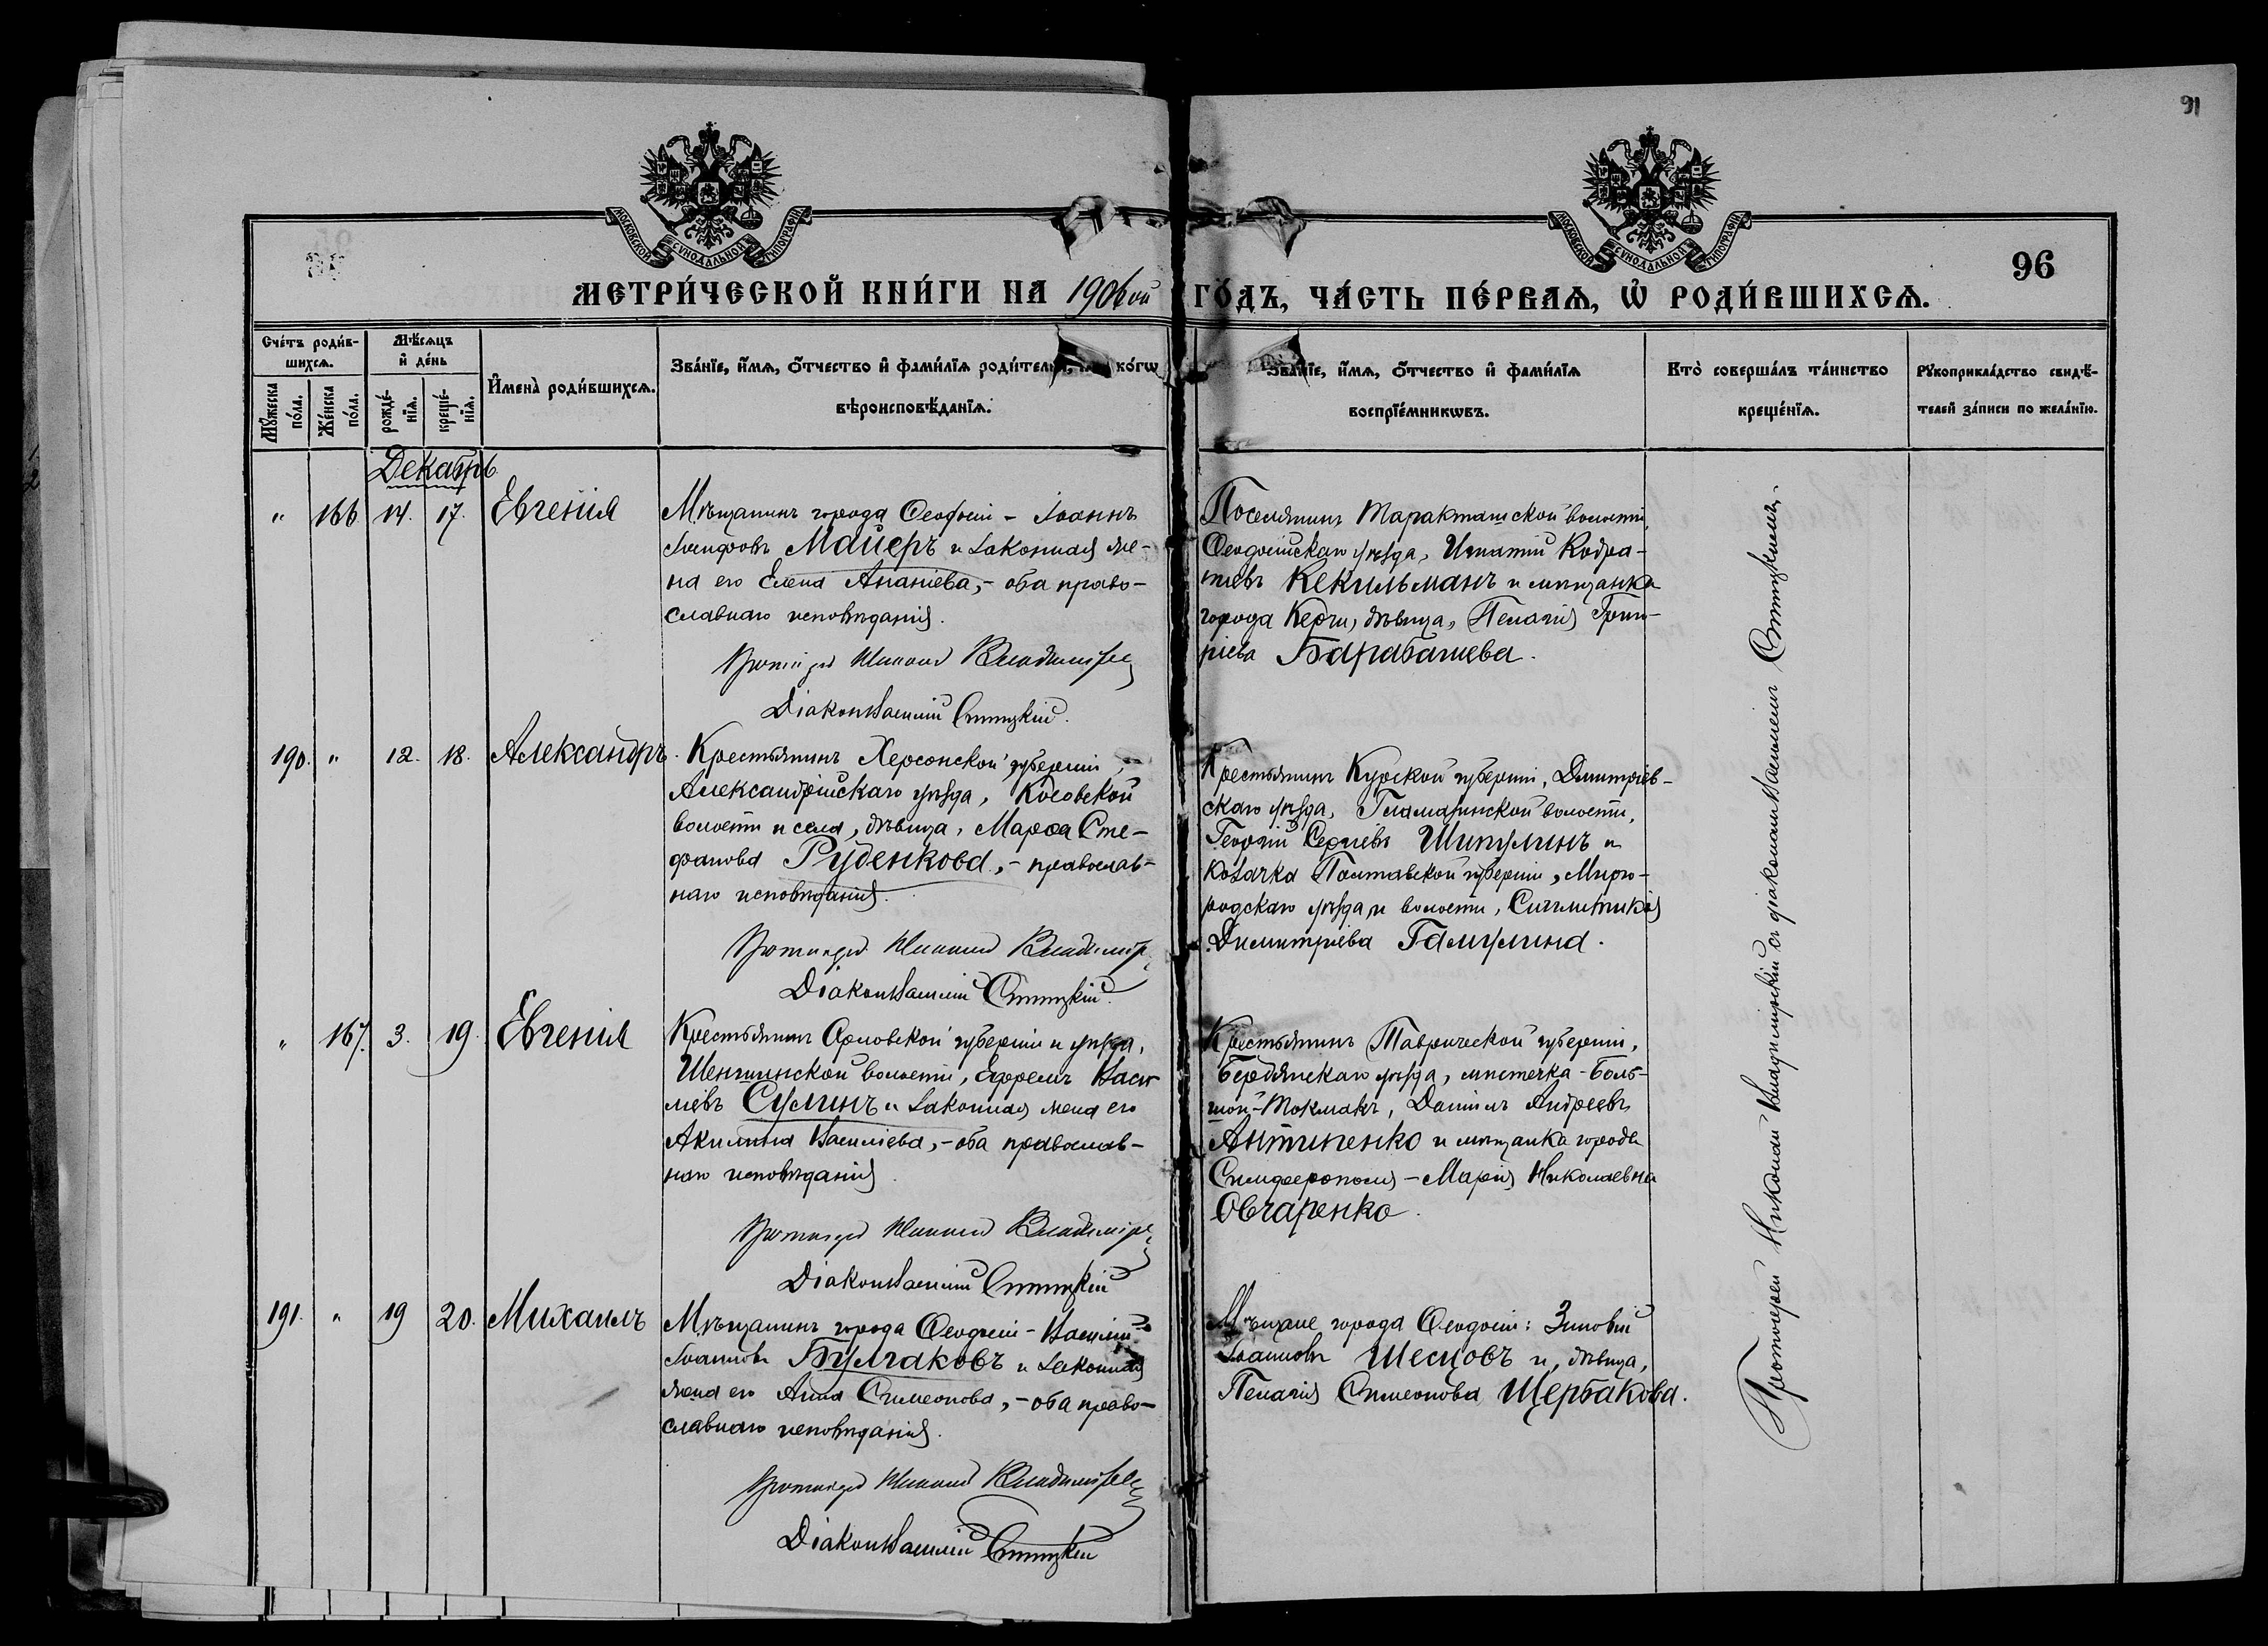 91
МОСКОВСКОЙ СѴНОДАЛЬНОЙ ТИПОГРАФІИ
МОСКОВСКОЙ СѴНОДАЛЬНОЙ ТИПОГРАФІИ
96
МЕТРИ́ЧЕСКОЙ КНИ́ГИ НА 1906 ой ГО́ДЪ, ЧА́СТЬ ПЕ́РВАѦ, Ѡ҆ РОДИ́ВШИХСѦ.
Сче́тъ роди́в-
шихсѧ.
Мꙋ́жеска по́ла.
Же́нска по́ла.
Мѣ́сѧцъ
и҆ де́нь
рожде́-
нїѧ.
креще́-
нїѧ.
И҆мена̀ роди́вшихсѧ.
Зва́нїе, и҆́мѧ, ѻ҆́тчество и҆ фами́лїѧ роди́телей, ко́гѡ
вѣроисповѣ́данїѧ.
Зва́нїе, и҆́мѧ, ѻ҆́тчество и҆ фами́лїѧ
воспрїе́мникѡвъ.
Кто̀ соверша́лъ та́инство
креще́нїѧ.
Рꙋкоприкла́дство свидѣ́-
телей за́писи по жела́нїю.
Декабрь
" 166 14. 17. Евгенія
Мѣщанинъ города Ѳеодосіи - Іоаннъ
Іосифовъ Майеръ и законная же-
на его Елена Ананіева, - оба право-
славнаго исповѣданія.
Протоіерей Николай Владимірскій
Діаконъ Василій Ститцкій.
Поселянинъ Таракташской волости,
Ѳеодосійскаго уѣзда, Игнатій Кодра-
тіевъ Кекильманъ и мѣщанка
города Керчи, дѣвица, Пелагія Григо-
ріева Барабашева.
190. " 12. 18. Александръ.
Крестьянинъ Херсонской губерніи,
Александрійскаго уѣзда, Косовской
волости и села, дѣвица, Марѳа Сте-
фанова Руденкова, - православ-
наго исповѣданія.
Протоіерей Николай Владимірскій
Діаконъ Василій Ститцкій.
Крестьянинъ Курской губерніи, Димитріев-
скаго уѣзда, Гламаздинской волости,
Георгій Сергіевъ Шипулинъ и
козачка Полтавской губерніи, Мирго-
родскаго уѣзда и волости,
Димитріева Гамулина.
" 167. 3. 19. Евгенія
Крестьянинъ Орловской губерніи и уѣзда,
Шеншинской волости, Ефремъ Васи-
ліевъ Сулинъ и законная жена его
Акилина Василіева, - оба православ-
наго исповѣданія
Протоіерей Николай Владимірскій
Діаконъ Василій Ститцкій
Крестьянинъ Таврической губерніи,
Бердянскаго уѣзда, мѣстечка - Боль-
шой-Токмакъ, Даніилъ Андреевъ
Антипенко и мѣщанка города
Симферополя - Марія Николаевна
Овчаренко.
191. " 19 20. Михаилъ
Мѣщанинъ города Ѳеодосіи - Василій
Іоанновъ Булгаковъ и законная
жена его Анна Симеонова, - оба право-
славнаго исповѣданія.
Протоіерей Николай Владимірскій
Діаконъ Василій Ститцкій
Мѣщане города Ѳеодосіи: Зиновій
Іоанновъ Шесцовъ и, дѣвица,
Пелагія Симеонова Щербакова.
Протоіерей Николай Владимірскій съ діакономъ Василіемъ Ститцкимъ.